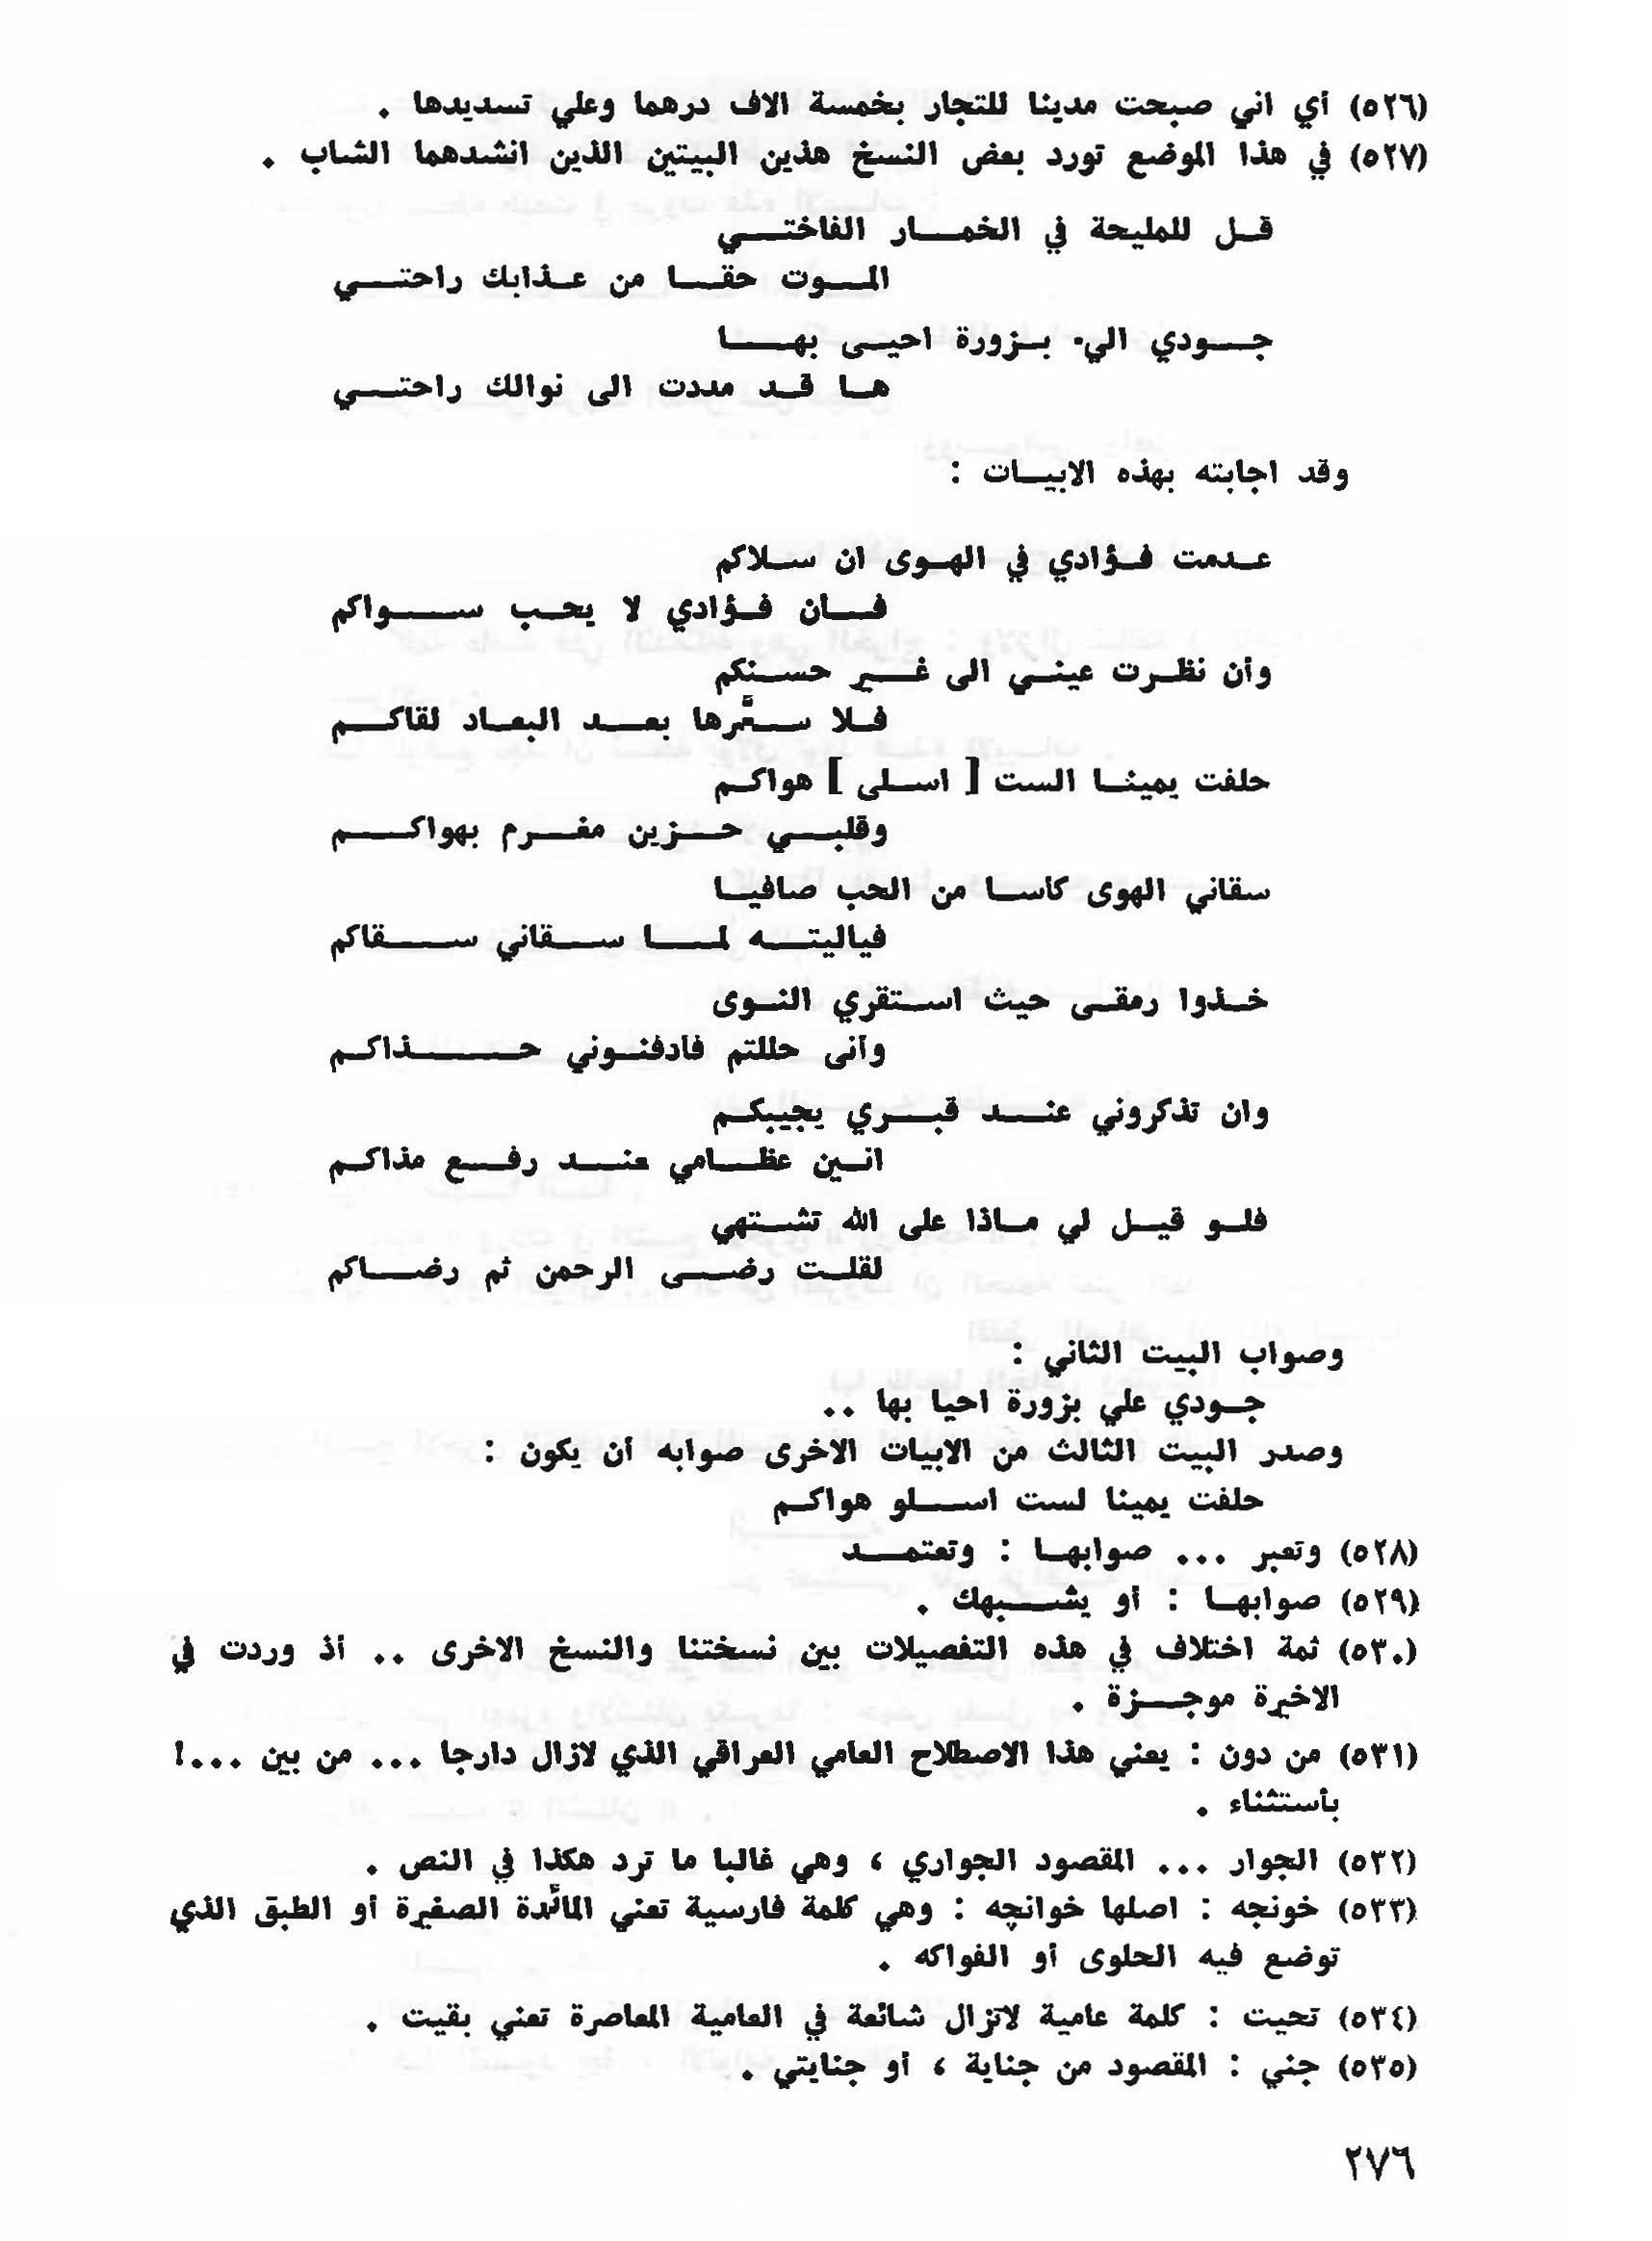 (٥٢٦) أي اني صبحت مدينا للتجار بخمسة الاف درهما وعلي تسديدها .
(٥٢٧) في هذا الموضع تورد بعض النسخ هذين البيتين الذين انشدهما الشاب .
قل للمليحة في الخمار الفاختي
الموت حقا من عذابك راحتي
جودي الي بزورة احيى بها
ها قد مددت الى نوالك راحتي
وقد اجابته بهذه الابيات :
عدمت فؤادي في الهوى ان سلاكم
فأن فؤادي لا يحب سواكم
وأن نظرت عيني الى غير حسنكم
فلا سَّرها بعد البعاد لقاكم
حلفت يمينا الست [ اسلى ] هواكم
وقلبي حزين مغرم بهواكم
سقاني الهوى كاسا من الحب صافيا
فياليته لما سقاني سقاكم
خذوا رمقى حيث استقري النوى
وأنى حللتم فادفنوني حذاكم
وان تذكروني عند قبري يجيبكم
انين عظامي عند رفع مذاكم
فلو قيل لي ماذا على الله تشتهي
لقلت رضى الرحمن ثم رضاكم
وصواب البيت الثاني :
جودي علي بزورة احيا بها ..
وصدر البيت الثالث من الابيات الاخرى صوابه أن يكون :
حلفت يمينا لست اسلو هواكم
(٥٢٨) وتعبر ... صوابها : وتعتمد
(٥٢٩) صوابها : أو يشبهك .
(٥٣٠) ثمة اختلاف في هذه التفصيلات بين نسختنا والنسخ الاخرى .. أذ وردت في
الاخيرة موجزة .
(٥٣١) من دون : يعني هذا الاصطلاح العامي العراقي الذي لازال دارجا ... من بين ...!
بأستثناء .
(٥٣٢) الجوار ... المقصود الجواري ، وهي غالبا ما ترد هكذا في النص .
(٥٣٣) خونجه : اصلها خوانچه : وهي كلمة فارسية تعني المائدة الصغيرة أو الطبق الذي
توضع فيه الحلوى أو الفواكه .
(٥٣٤) تحيت : كلمة عامية لاتزال شائعة في العامية المعاصرة تعني بقيت .
(٥٣٥) جني : المقصود من جناية ، أو جنايتي .
٢٧٦